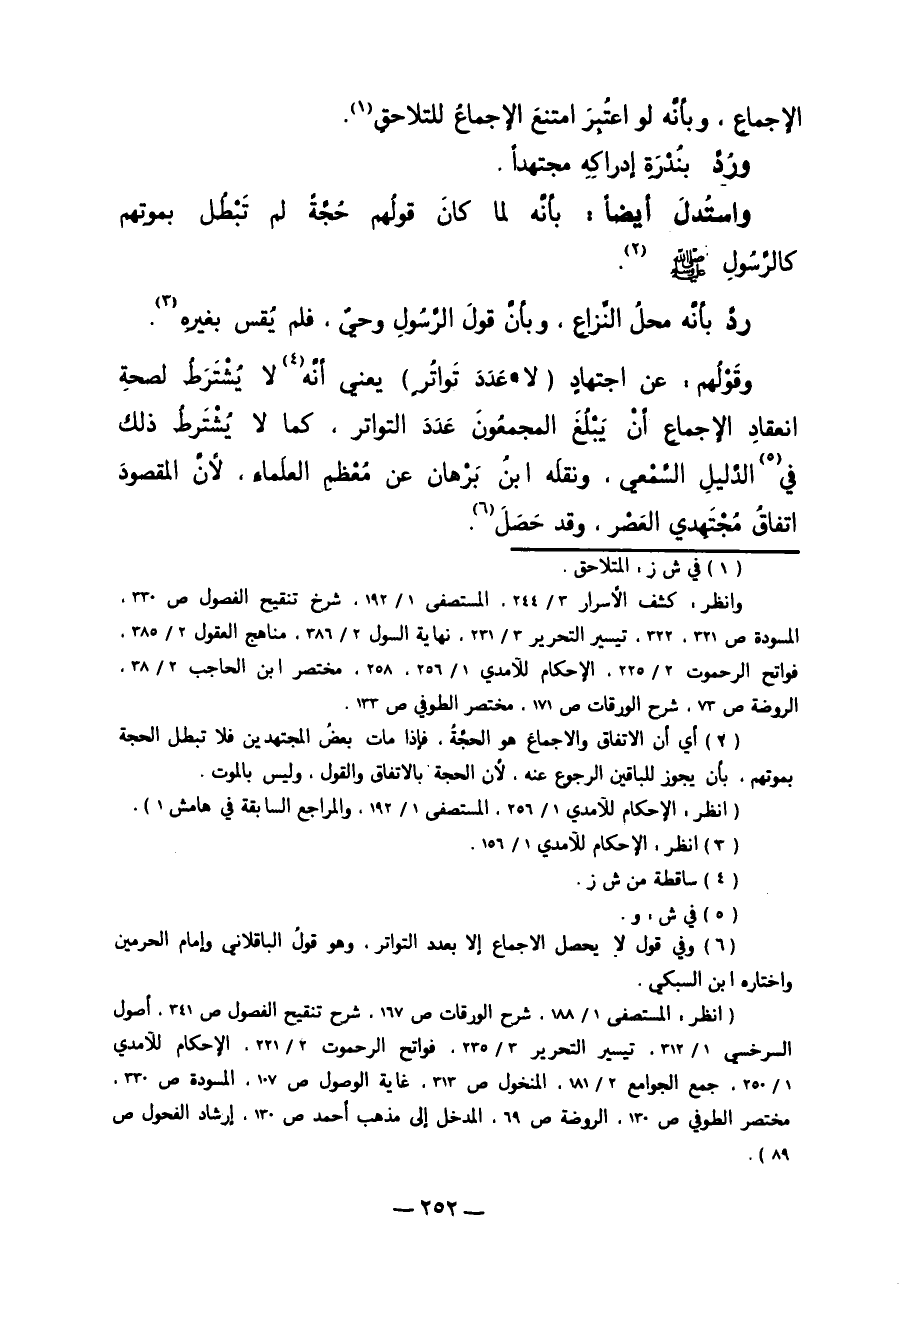 الإجماع ، وبأنَّه لو اعتُبِرَ امتنعَ الإجماعُ للتلاحقِ(١).
ورُدَّ بنُدْرَةِ إدراكِهِ مجتهداً .
واستُدلَ أيضاً : بأنَّه لما كانَ قولُهم حُجَّةً لم تَبْطُل بموتهم
كالرَّسُولِ ﷺ (٢).
ردَّ بأنَّه محلُ النِّزاعِ ، وبأنَّ قولَ الرَّسُولِ وحيٌ ، فلم يُقس بغيرِهِ(٣).
وقَوْلُهم : عن اجتهادٍ ( لا عَدَدَ تَواتُرٍ ) يعني أنَّه(٤) لا يُشْتَرَطُ لصحةِ
انعقادِ الإجماعِ أنْ يَبْلُغَ المجمعُونَ عَدَدَ التواتر ، كما لا يُشْتَرطُ ذلك
في(٥) الدَّليلِ السَّمْعي ، ونقلَه ابنُ بَرْهان عن مُعْظمِ العلَماء ، لأنَّ المقصودَ
اتفاقُ مُجْتَهدي العَصْرِ ، وقد حَصَلَ(٦).
( ١ ) في ش ز : المتلاحق .
وانظر : كشف الأسرار ٣/ ٢٤٤ ، المستصفى ١/ ١٩٢ ، شرخ تنقيح الفصول ص ٣٣٠ ،
المسودة ص ٣٢١ ، ٣٢٢ ، تيسير التحرير ٣/ ٢٣١ ، نهاية السول ٢/ ٣٨٦ ، مناهج العقول ٢/ ٣٨٥ ،
فواتح الرحموت ٢/ ٢٢٥ ، الإحكام للآمدي ١/ ٢٥٦ ، ٢٥٨ ، مختصر ابن الحاجب ٢/ ٣٨ ،
الروضة ص ٧٣ ، شرح الورقات ص ١٧١ ، مختصر الطوفي ص ١٣٣ .
( ٢ ) أي أن الاتفاق والاجماع هو الحجَّةُ ، فإذا مات بعضُ المجتهدين فلا تبطل الحجة
بموتهم ، بأن يجوز للباقين الرجوع عنه ، لأن الحجة بالاتفاق والقول ، وليس بالموت .
( انظر : الإحكام للآمدي ١/ ٢٥٦ ، المستصفى ١/ ١٩٢ ، والمراجع السابقة في هامش ١ ) .
( ٣ ) انظر : الإحكام للآمدي ١/ ١٥٦ .
( ٤ ) ساقطة من ش ز .
( ٥ ) في ش : و .
( ٦ ) وفي قول لا يحصل الاجماع إلا بعدد التواتر ، وهو قولُ الباقلاني وإمام الحرمين
واختاره ابن السبكي .
( انظر : المستصفى ١/ ١٨٨ ، شرح الورقات ص ١٦٧ ، شرح تنقيح الفصول ص ٣٤١ ، أصول
السرخسي ١/ ٣١٢ ، تيسير التحرير ٣/ ٢٣٥ ، فواتح الرحموت ٢/ ٢٢١ ، الإحكام للآمدي
١/ ٢٥٠ ، جمع الجوامع ٢/ ١٨١ ، المنخول ص ٣١٣ ، غاية الوصول ص ١٠٧ ، المسودة ص ٣٣٠ ،
مختصر الطوفي ص ١٣٠ ، الروضة ص ٦٩ ، المدخل إلى مذهب أحمد ص ١٣٠ ، إرشاد الفحول ص
٨٩ ) .
— ٢٥٢ —